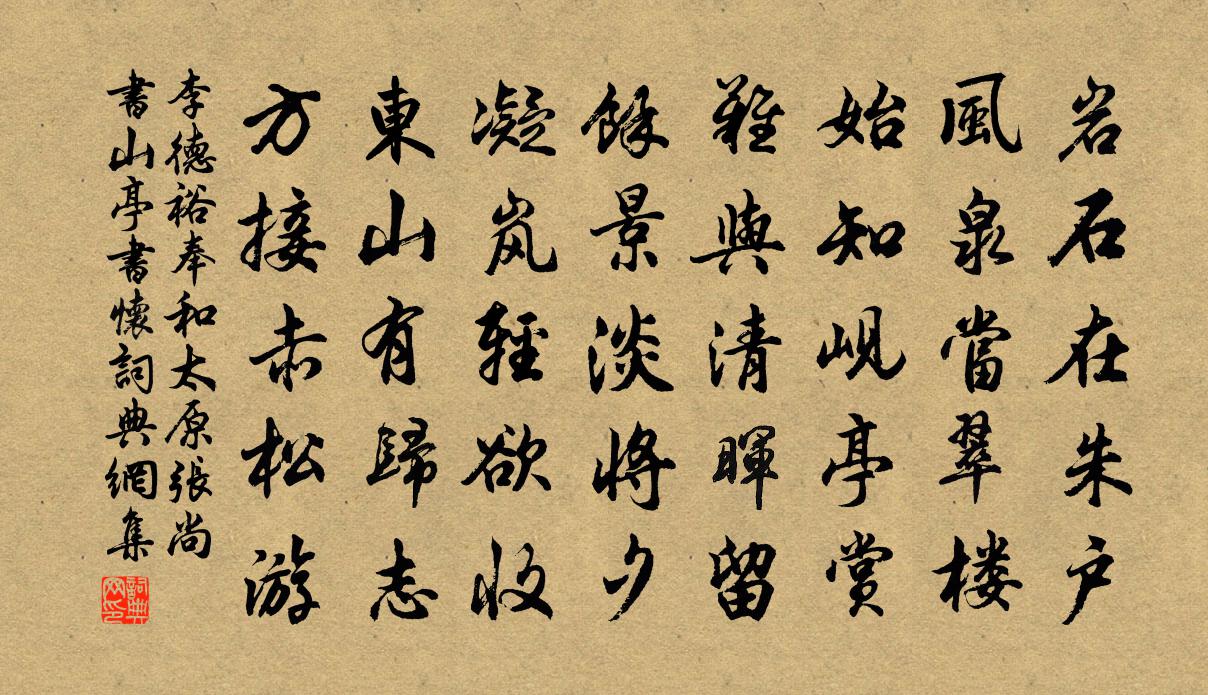 岩石在朱户
風泉當翠楼
始知峴亭賞
難與清暉留
餘景淡将夕
凝岚輕欲收
東山有歸志
方接赤松游
李德裕奉和太原張尚
書山亭書懷詞典網集
詞典
网印